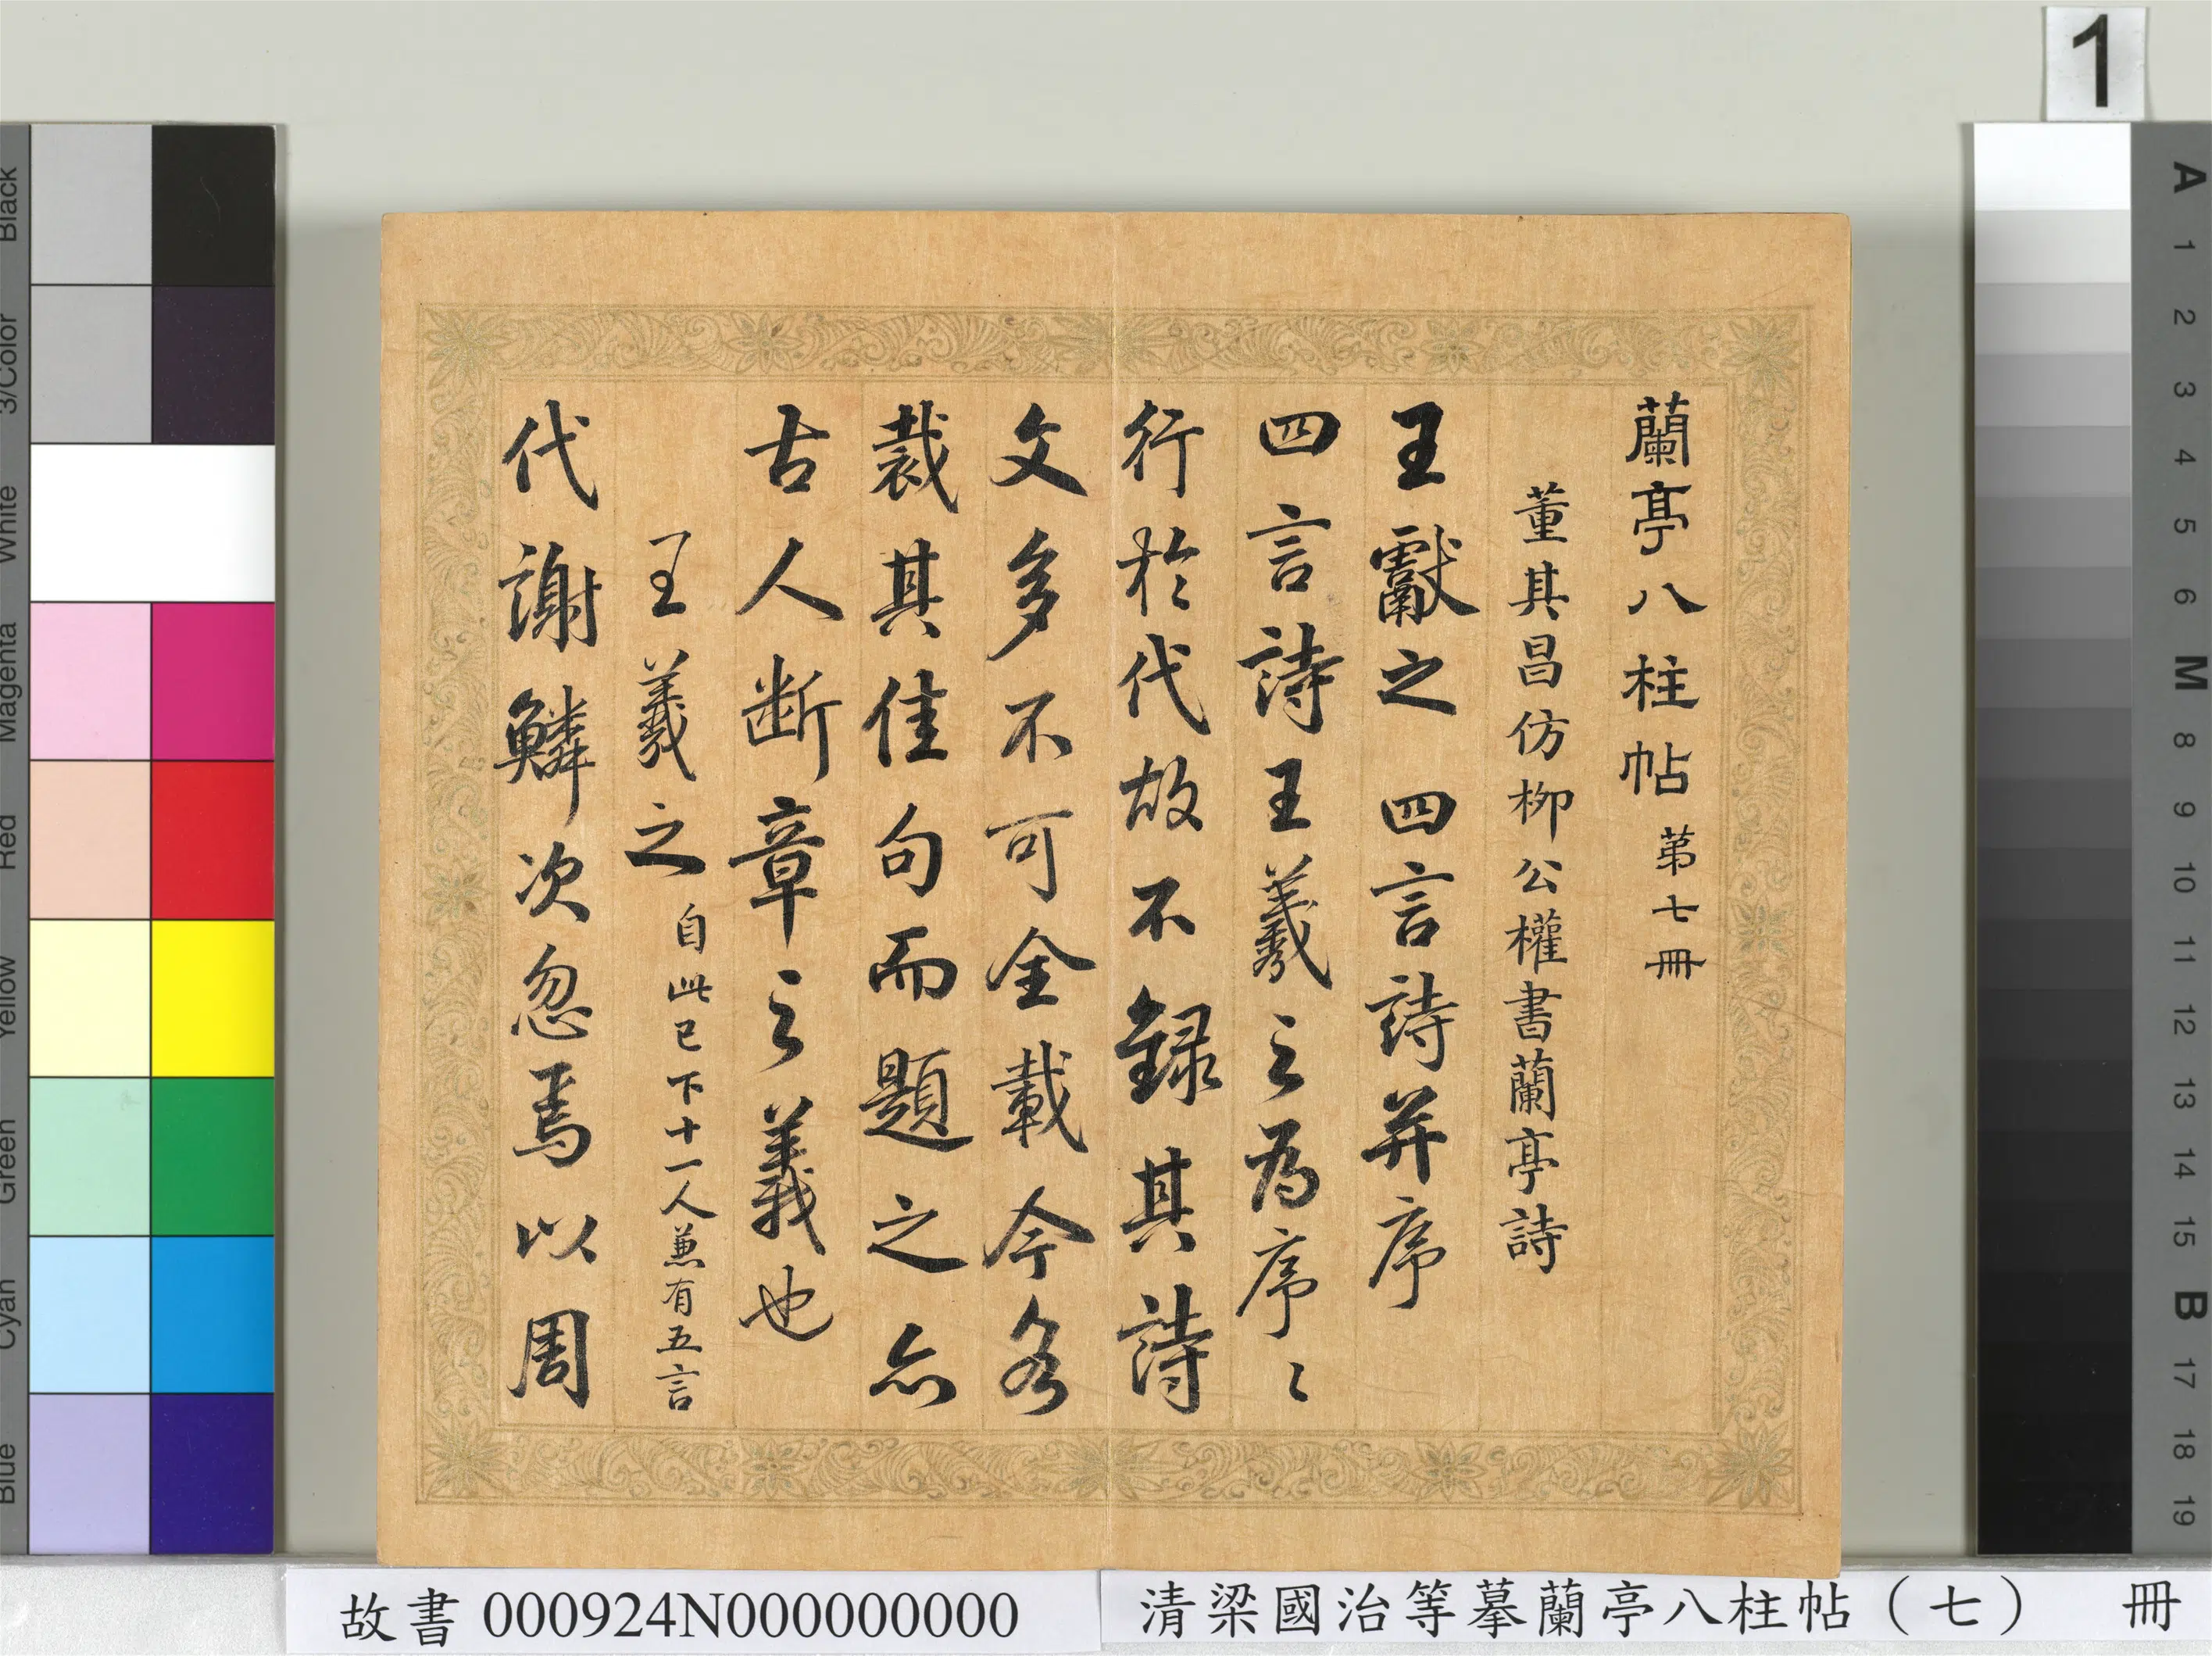 蘭亭八柱帖 第七冊
董其昌仿柳公權書蘭亭詩
王獻之四言詩并序
四言詩王羲之為序〻
行於代故不録其詩
文多不可全載今各
裁其佳句而題之亦
古人断章之義也
王羲之 自此已下十一人兼有五言
代謝鱗次忽焉以周
1
故書 000924N000000000
清梁國治等摹蘭亭八柱帖（七） 冊
Black
3/Color
White
Magenta
Red
Yellow
Green
Cyan
Blue
A
1
2
3
4
5
6
M
8
9
10
11
12
13
14
15
B
17
18
19